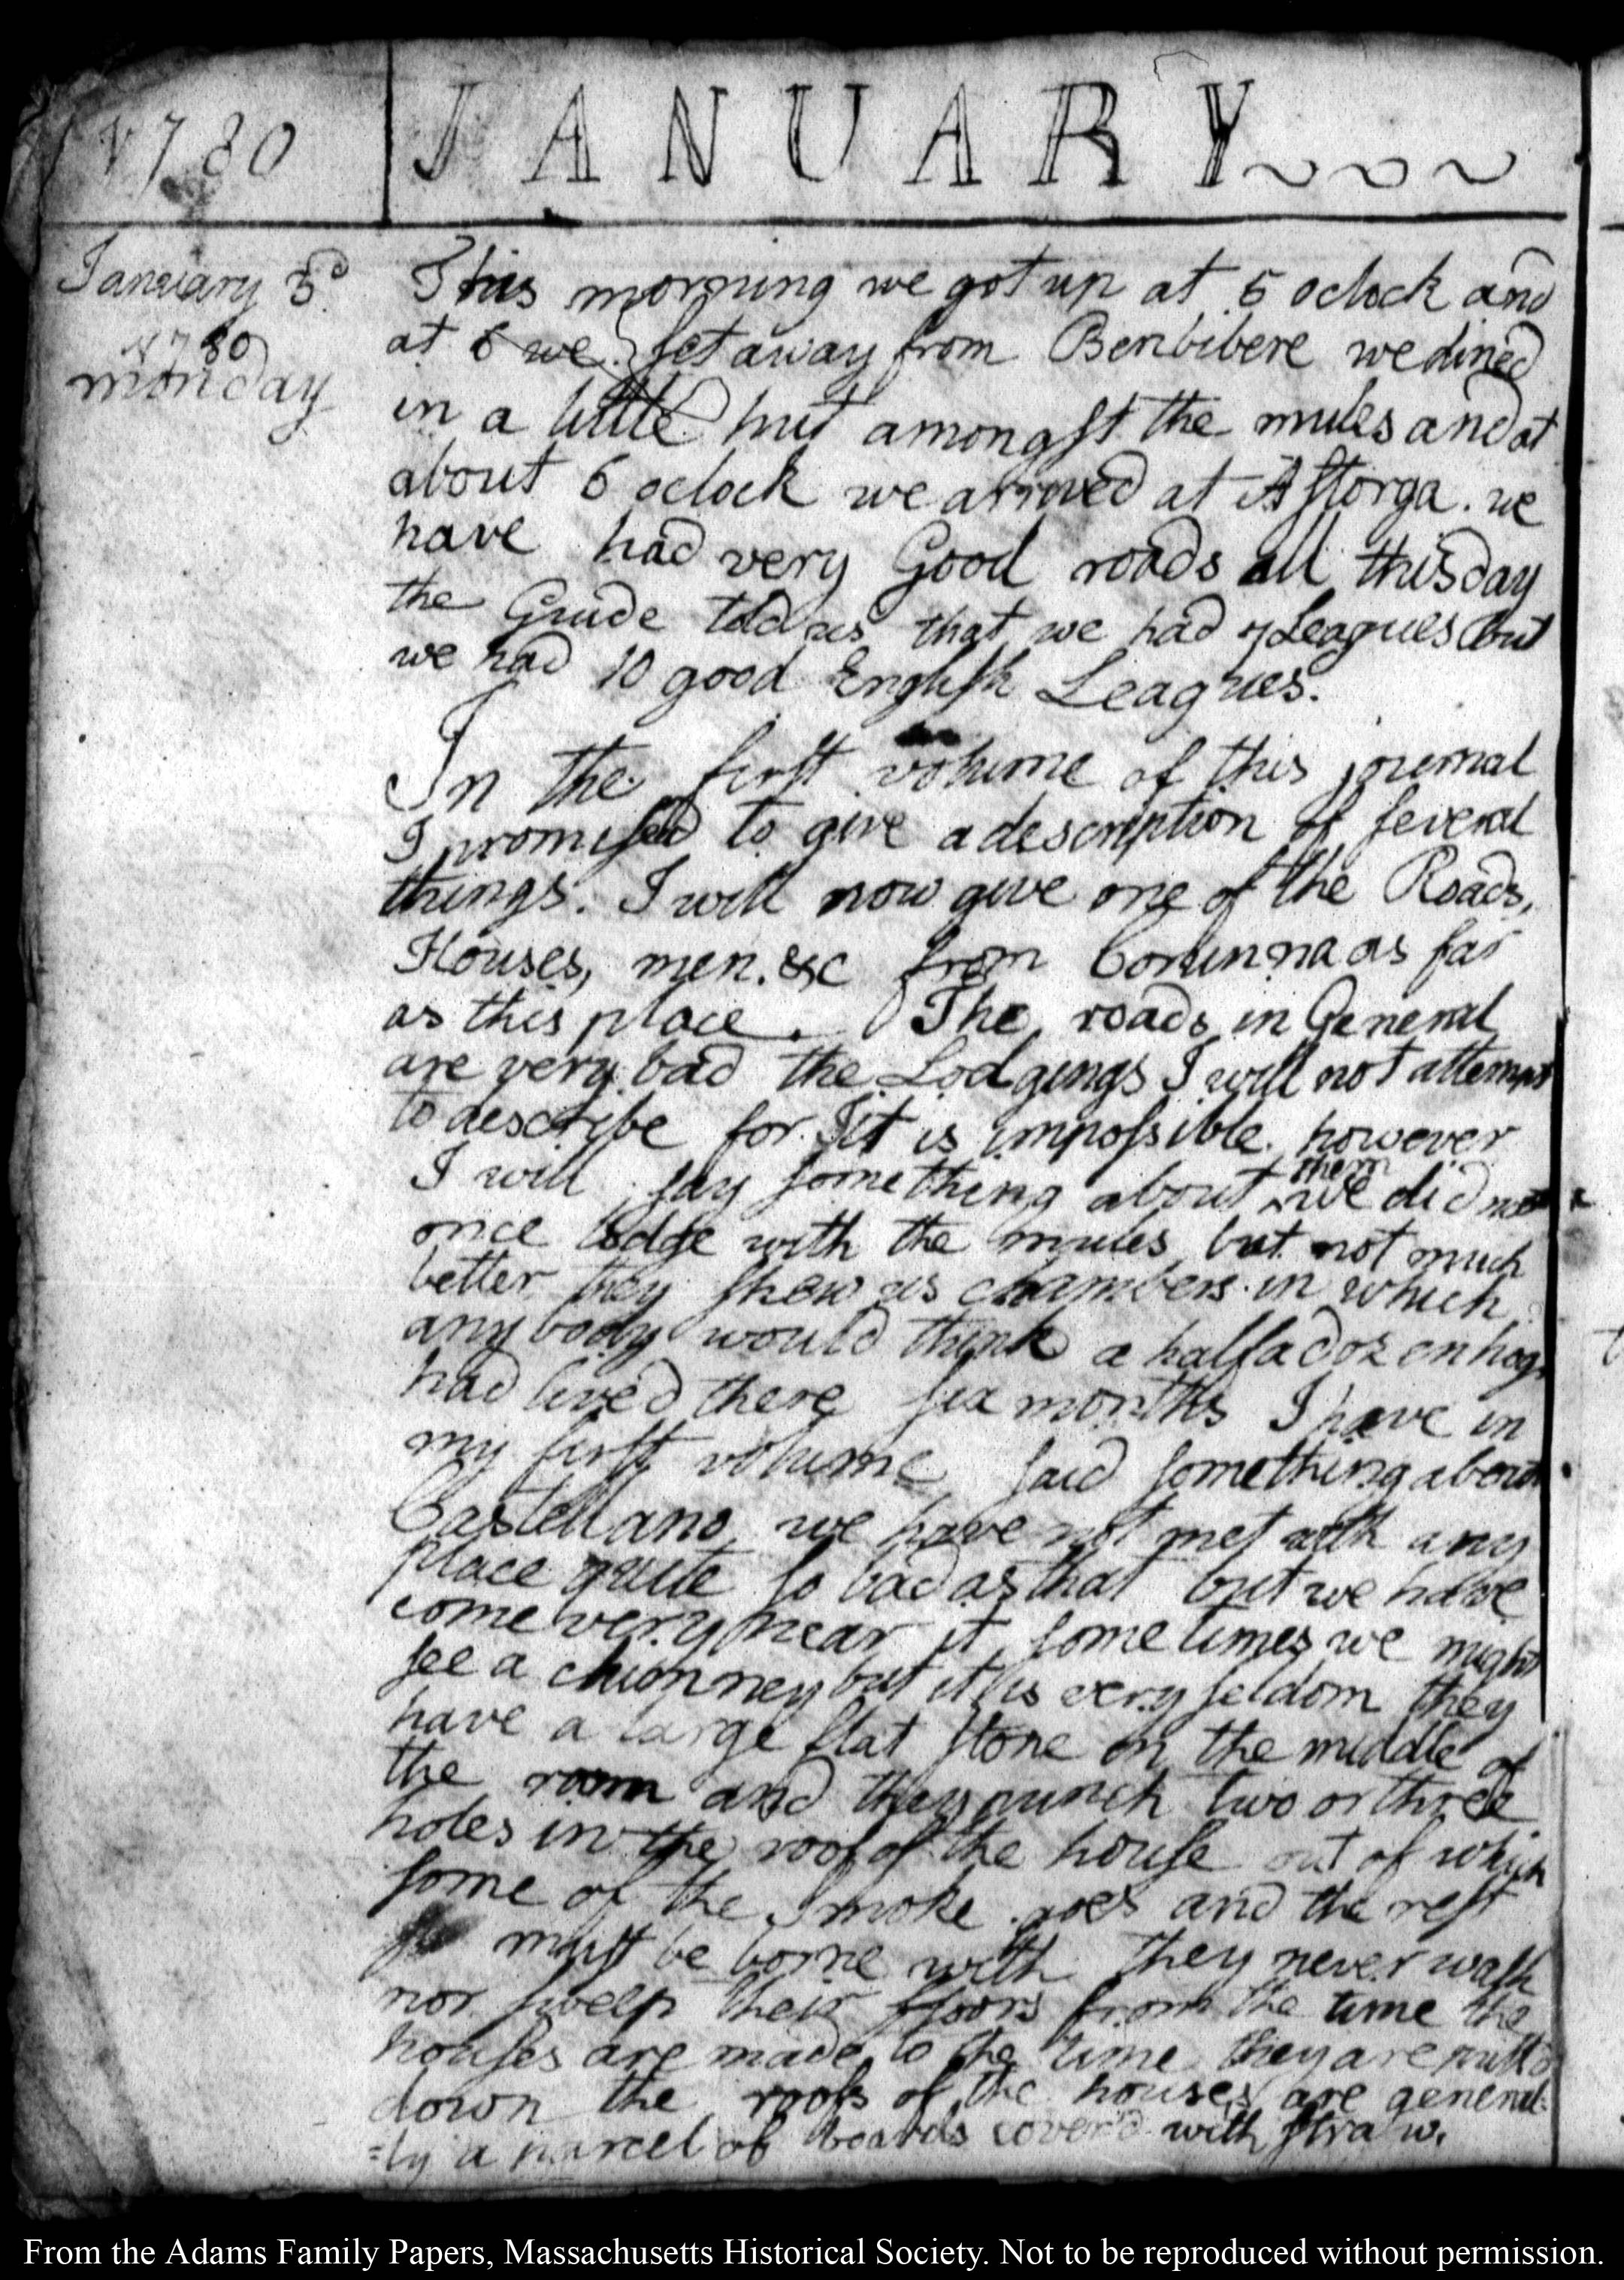 1780
JANUARY
January 3d
1780
monday
This morning we got up at 5 oclock and
at 6 we set away from Benbibere we dined
in a little hut amongst the mules and at
about 6 oclock we arrived at Astorga. we
have had very Good roads all this day
the Guide told us that we had 7 Leagues but
we had 10 good English Leagues.
In the first volume of this journal
I promised to give a description of several
things. I will now give one of the Roads,
Houses, men. &c from Corunna as far
as this place. The roads in General
are very bad the Lodgings I will not attempt
to describe for it is impossible however
I will say something about them we did not
once lodge with the mules but not much
better they shew us chambers in which
any body would think a half a dozen hogs
had lived there six months I have in
my first volume said something about
Castellano we have not met with any
place quite so bad as that but we have
come very near it, some times we might
see a chimney but it is very seldom they
have a large flat stone in the middle of
the room and they punch two or three
holes in the roof of the house out of which
some of the smoke goes and the rest
must be borne with they never wash
nor sweep their floors from the time the
houses are made to the time they are pull'd
down the roofs of the houses are general
=ly a parcel of boards cover'd with straw.
From the Adams Family Papers, Massachusetts Historical Society. Not to be reproduced without permission.